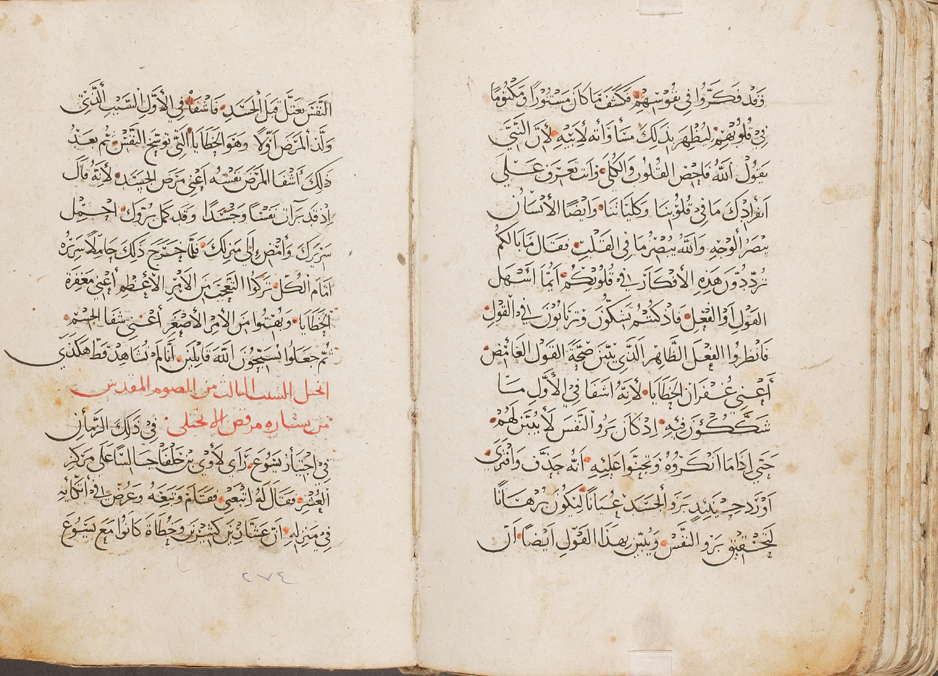 وقد فكروا في نفوسهم فكشف ما كان مستورا ومكتوما
في قلوبهم ليظهر بذلك مسا وانه لابيه لان النبي
يقول الله فاحص القلوب والكلي وانت تعرف علي
انفرادك ما في قلوبنا وكلياتنا وايضا الانسان
يبصر الوجه والله يبصر ما في القلب فقال ما بالكم
ترددون هذه الافكار في قلوبكم ايما اسهل
القول او الفعل فاذ كنتم تشكون وترتابون في القول
فانظروا الفعل الظاهر الذي يبين صحة القول الغامض
أعني غفران الخطايا لانه اشفا في الاول ما
شككون فيه اذ كان برو النفس لا يبين لهم
حتي اذا ما انكروه وتجنوا عليه انه جدف وافترى
اورد حينيذ برو الجسد عيانا ليكون برهانا
لتحقيق برو النفس ويبين بهذا القول ايضا ان
النفس يعتل قبل الجسد فاشفا في الاول السبب الذي
ولد المرض اولا وهو الخطايا التي توسخ النفس ثم بعد
ذلك أشفا المرض نفسه اعني مرض الجسد لانه قال
اذ قد بران نفسا وجسدا وقد كمل بروك احمل
سريرك وأمض إلى منزلك فلما خرج ذلك حاملا سريره
امام الكل تركوا التعجب من الامر الأعظم أعني مغفرة
الخطايا وبهتوا من الامر الأصغر أعني شفا الجسم
ثم جعلوا يسبحون الله قايلين أنا لم نشاهد قط هكذي
انجيل السبت الثالث من الصوم المقدس
من بشاره مرقص الانجيلي في ذلك الزمان
في اجتياز يسوع رأي لاوي بن حلفا جالسا على مركز
العشر فقال له اتبعني فقام وتبعه وعرض في اتكايه
في منزله أن عشارين كثيرين وخطاة كانوا مع يسوع
٢٧٤